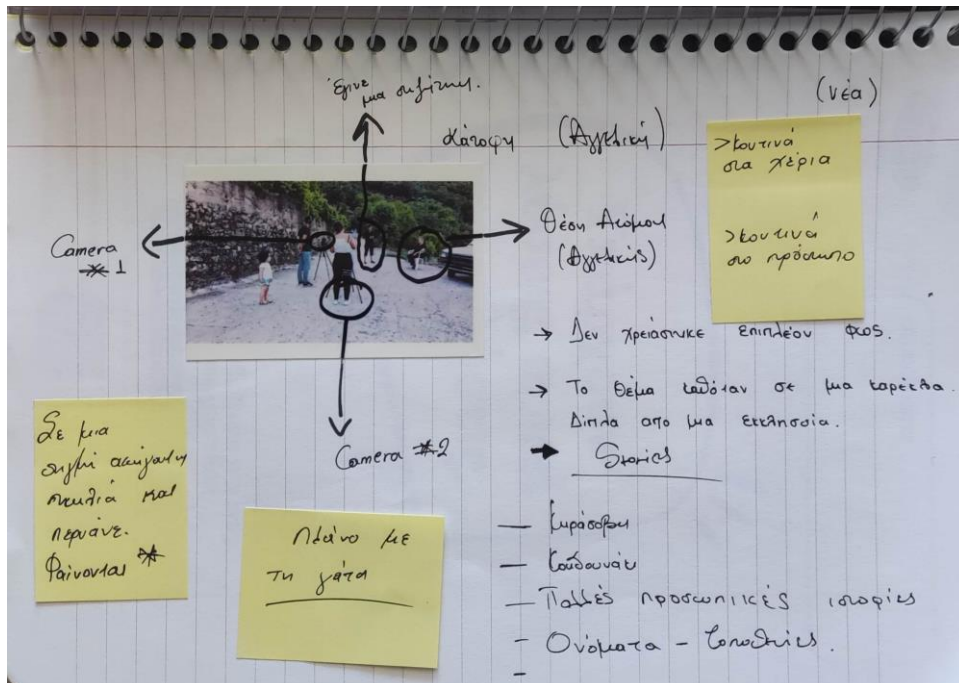 Έγινε
μια συζήτηση.
κάτοψη (Αγγελική)
(νέα)
>κοντινά
στα χέρια
>κοντινά
στο πρόσωπο
Camera
#1
Θέση Ατόμου
(Αγγελικής)
→ Δεν χρειάστηκε επιπλέον φως.
→ Το θέμα καθόταν σε μια καρέκλα.
Δίπλα από μια εκκλησία.
→ Stories
Σε μια
στιγμή
σκυλιά και
περνάνε.
Φαίνονται *
Camera #2
Πλάνο με
τη γάτα
—
—
— Πολλές προσωπικές ιστορίες
- Ονόματα - Τοποθεσίες.
-